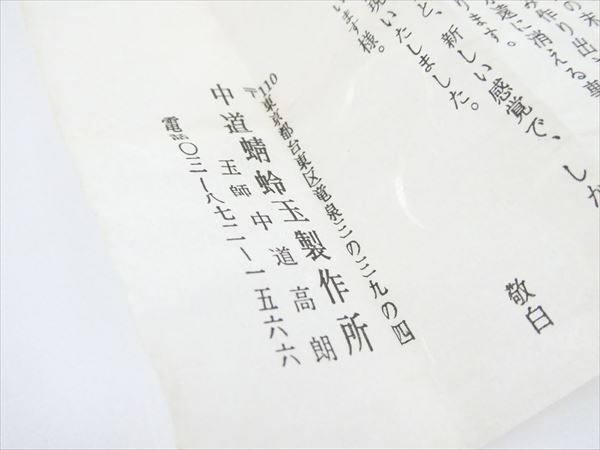 の木
み作り出
永遠に消える
ります。
と、新しい感覚で、しか
現いたしました。
います様。
敬白
〒110
東京都台東区竜泉三の三九の四
中道蜻蛉玉製作所
玉師 中道高朗
電話〇三―八七二―一五六六